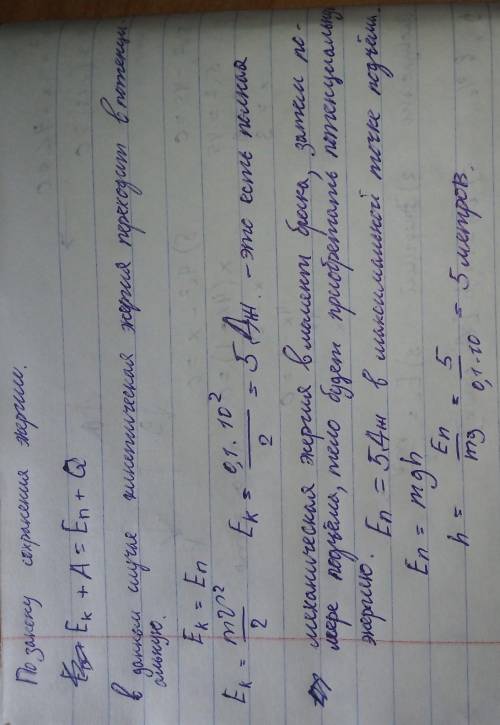 По закону сохранения энергии.
Eк + A = Eп + Q
в данном случае кинетическая энергия переходит в потенци
альную.
Eк = Eп
Eк = mv²/2 Eк = 0,1·10²/2 = 5 Дж. - это есть полная
механическая энергия в момент броска, затем по-
мере подъёма, тело будет приобретать потенциальную
энергию. Eп = 5 Дж в максимальной точке подъёма.
Eп = mgh
h = Eп/mg = 5/0,1·10 = 5 метров.